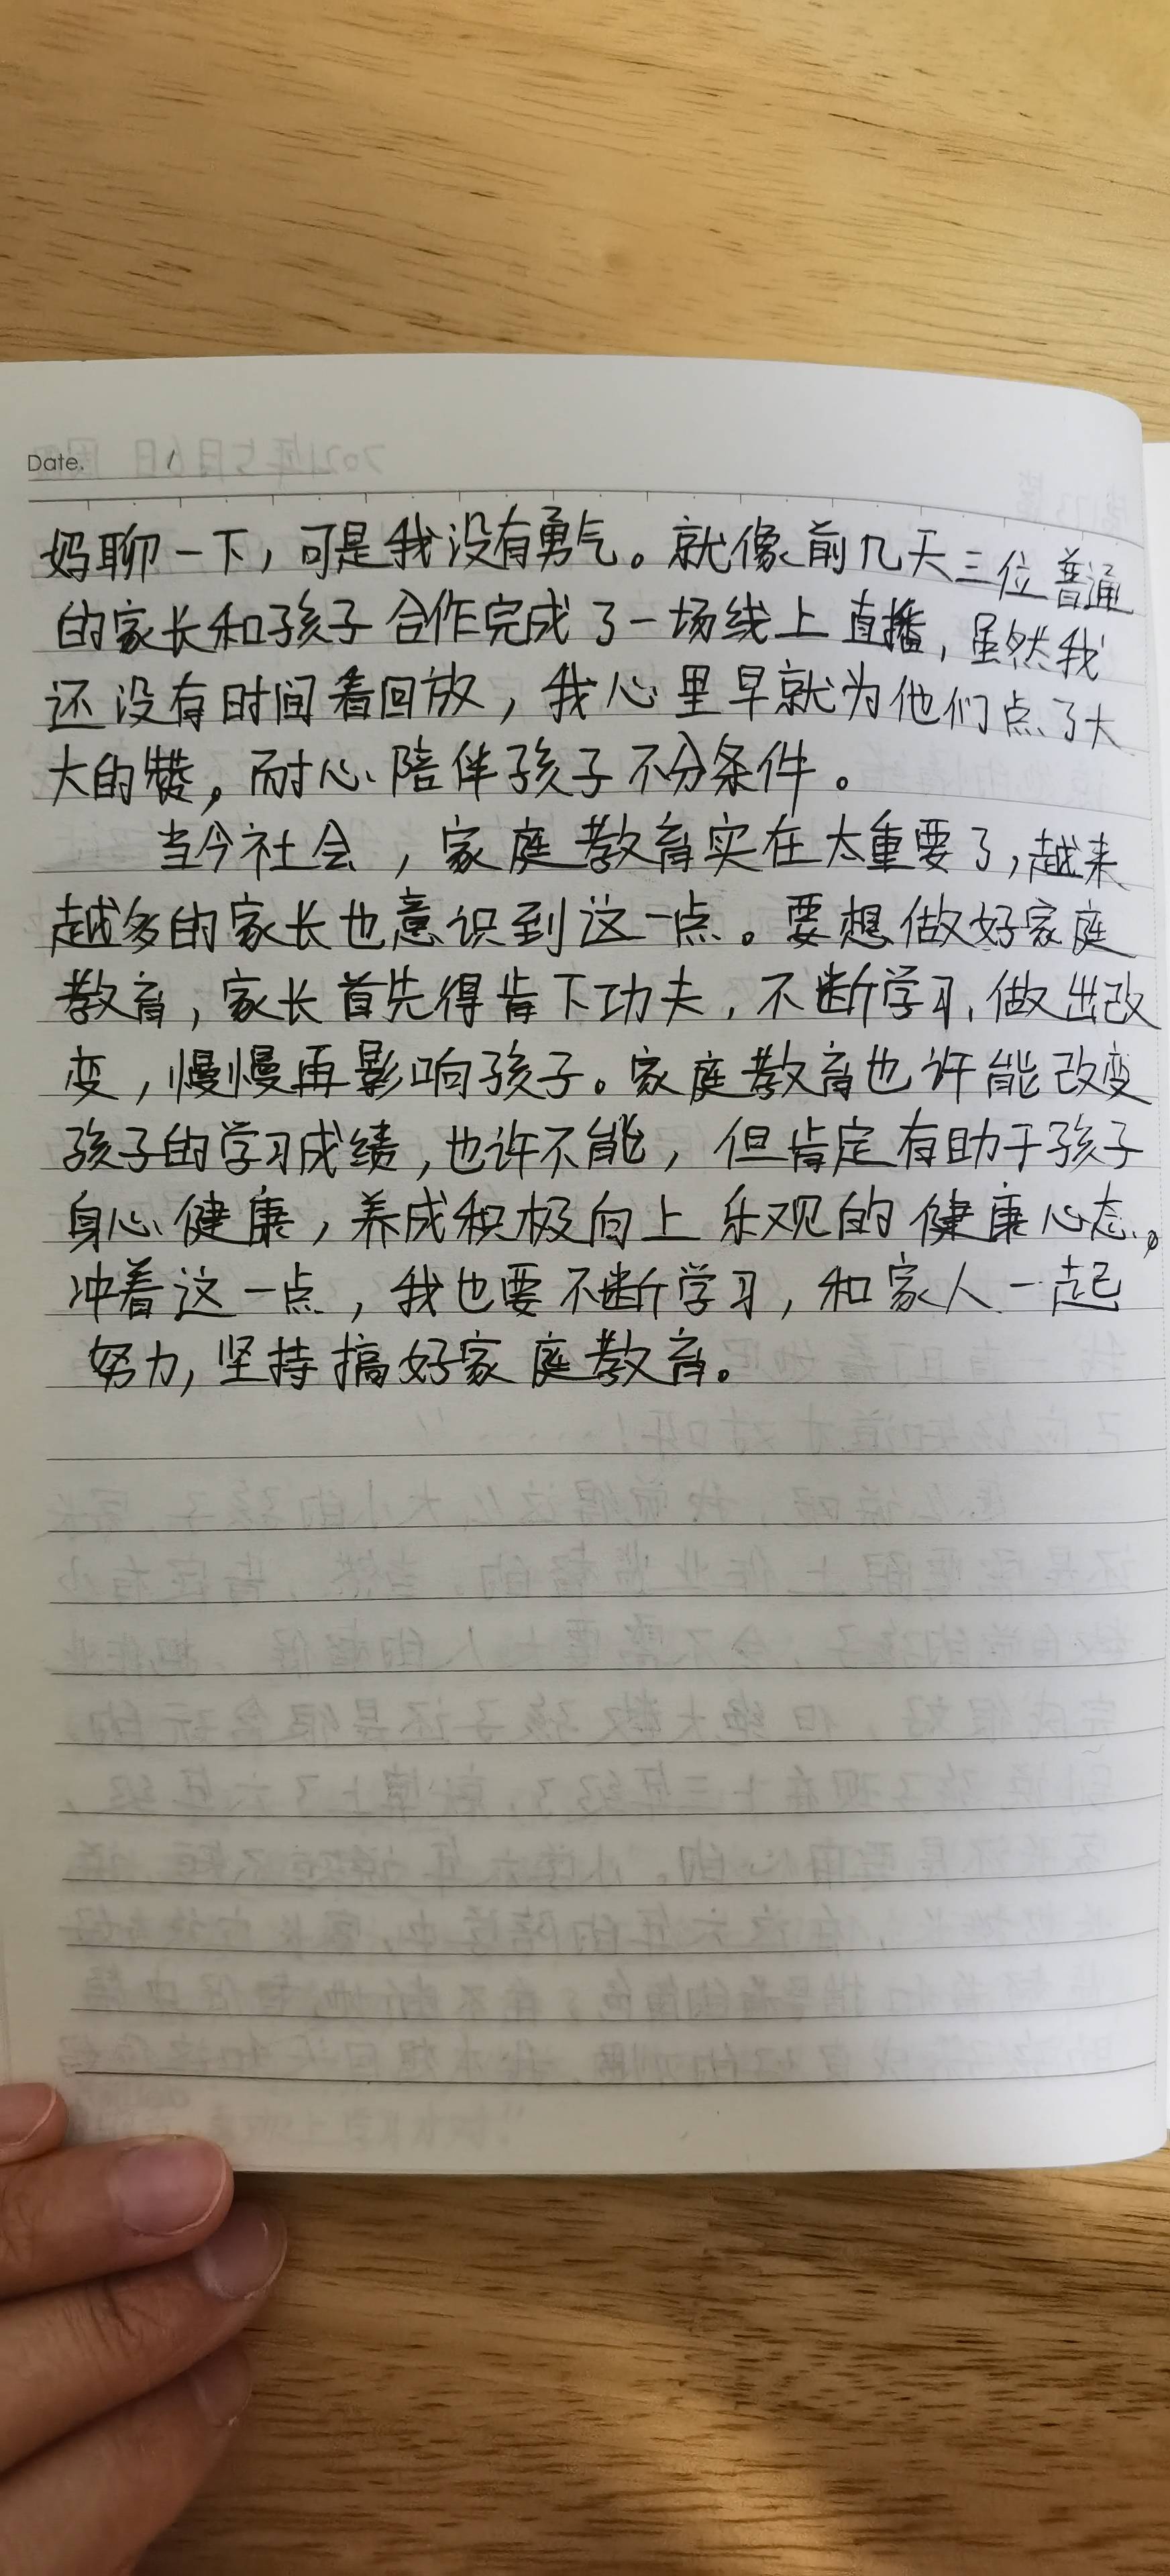 Date.
妈聊一下，可是我没有勇气。就像前几天三位普通
的家长和孩子合作完成了一场线上直播，虽然我
还没有时间看回放，我心里早就为他们点了大
大的赞，耐心陪伴孩子不分条件。
当今社会，家庭教育实在太重要了，越来
越多的家长也意识到这一点。要想做好家庭
教育，家长首先得肯下功夫，不断学习，做出改
变，慢慢再影响孩子。家庭教育也许能改变
孩子的学习成绩，也许不能，但肯定有助于孩子
身心健康，养成积极向上乐观的健康心态。
冲着这一点，我也要不断学习，和家人一起
努力，坚持搞好家庭教育。